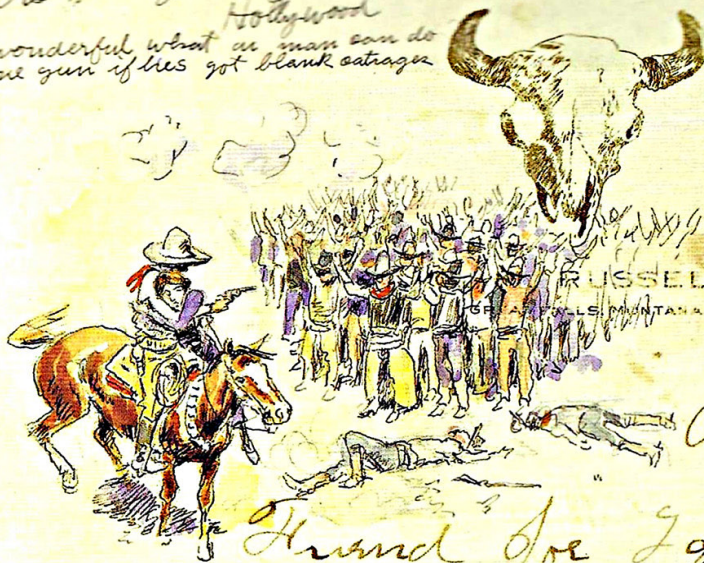 Hollywood
wonderful what a man can do
gun if hes got blank catrages
RUSSEL
GREAT FALLS, MONTANA
Friend Joe